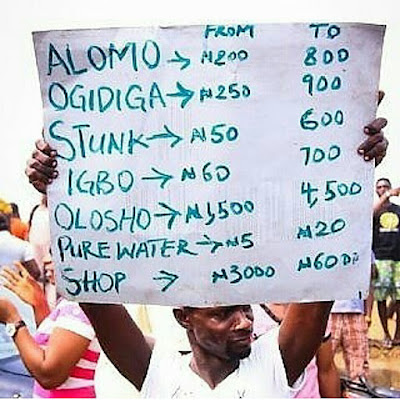 FROM TO
ALOMO → ₦200 800
OGIDIGA → ₦250 900
STUNK → ₦50 600
IGBO → ₦60 700
OLOSHO → ₦1,500 4,500
PURE WATER → ₦5 ₦20
SHOP → ₦3000 ₦6000